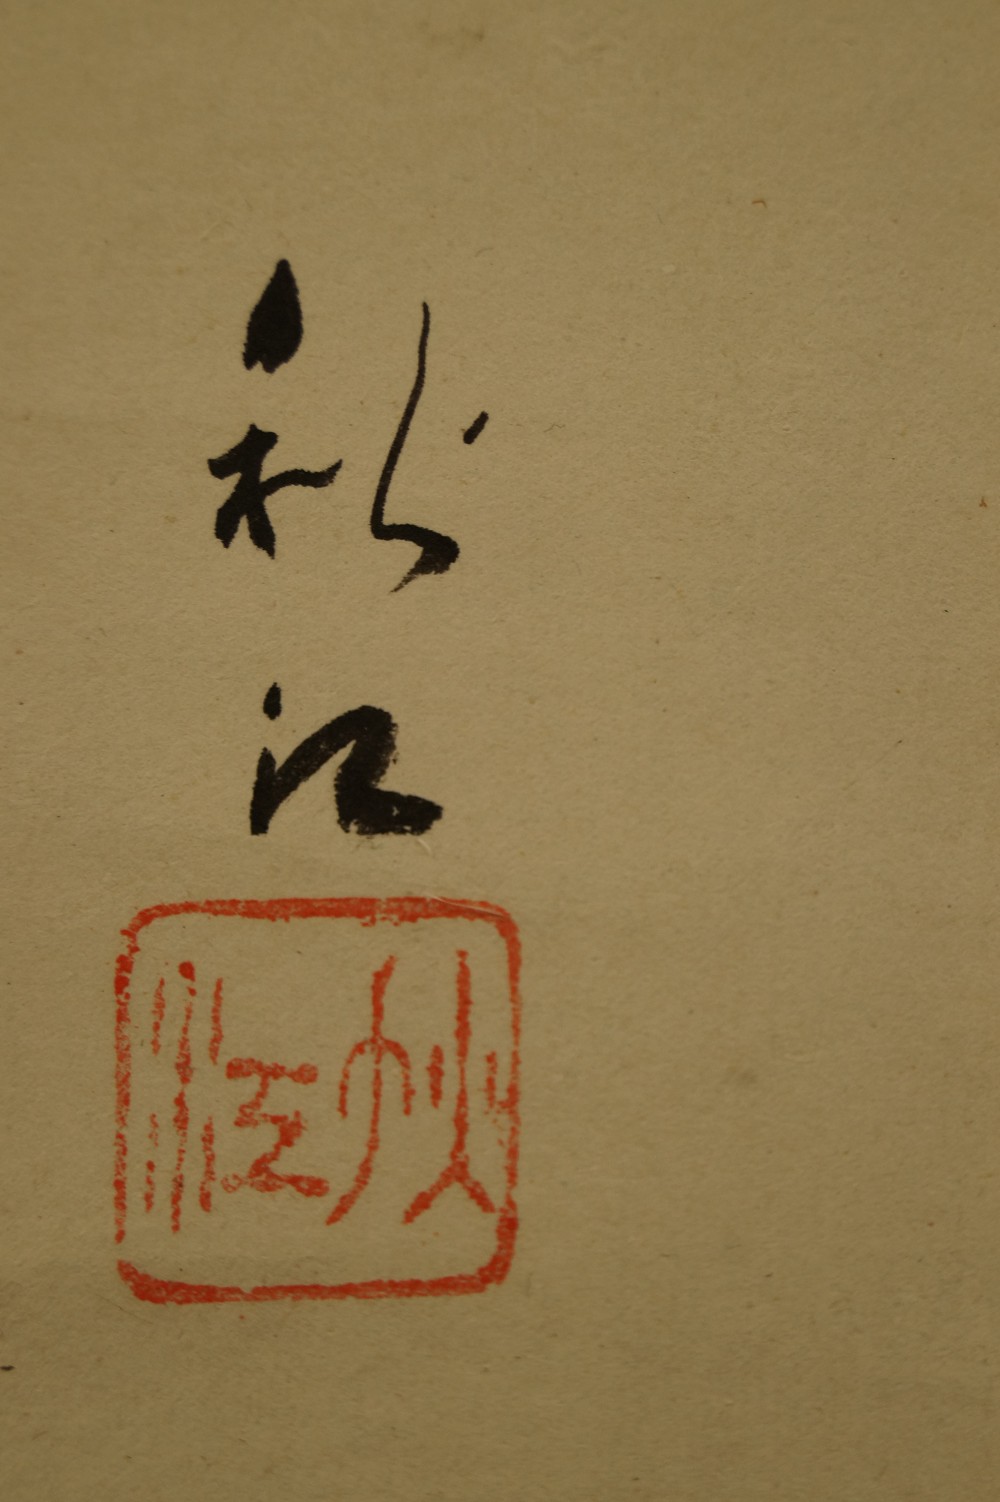 秋江
秋江